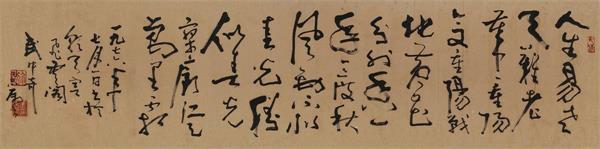 人生易老
天難老
歲歲重陽
今又重陽戰
地黃花
分外香一
年一度秋
風勁不似
春光勝
似春光
寥廓江天
萬里霜
一九七六年
七月一日書於
武中奇